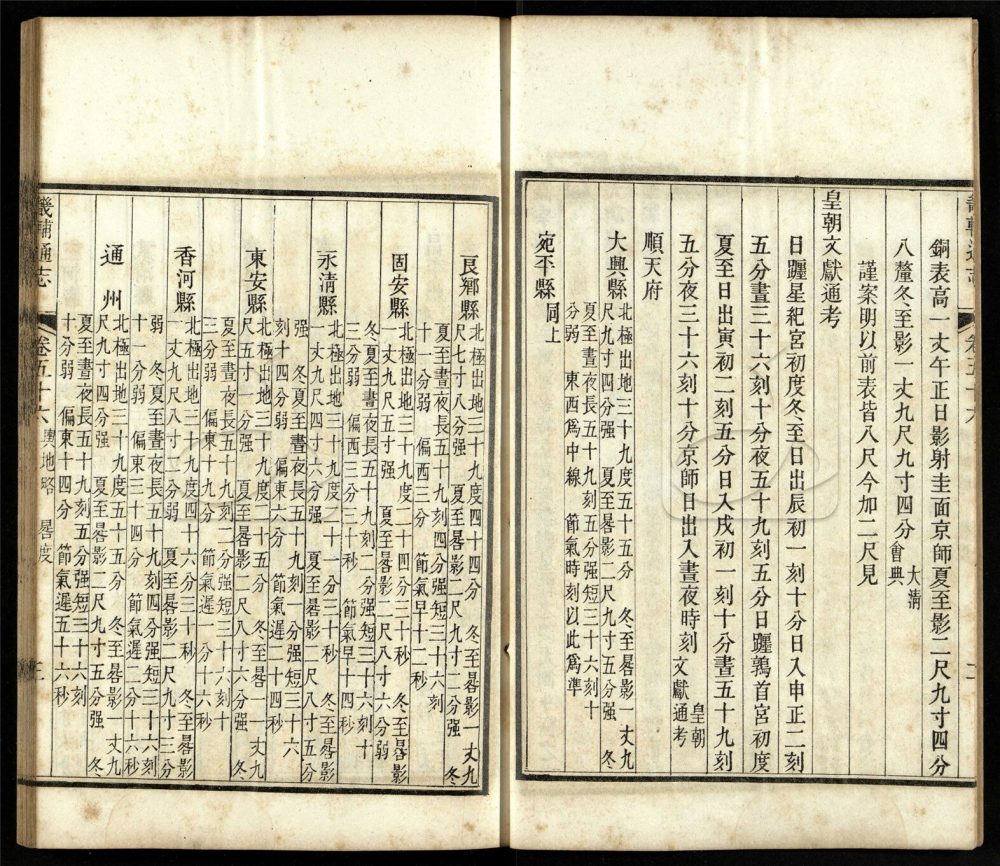 銅表高一丈午正日影射圭面京師夏至影二尺九寸四分
八釐冬至影一丈九尺九寸四分大清
會典
謹案明以前表皆八尺今加二尺見
皇朝文獻通考
日躔星紀宮初度冬至日出辰初一刻十分日入申正二刻
五分晝三十六刻十分夜五十九刻五分日躔鶉首宮初度
夏至日出寅初二刻五分日入戌初一刻十分晝五十九刻
五分夜三十六刻十分京師日出入晝夜時刻皇朝
文獻通考
順天府
大興縣北極出地三十九度五十五分 冬至晷影一丈九
尺九寸四分強 夏至晷影二尺九寸五分強 冬
夏至晝夜長五十九刻五分強短三十六刻十
分弱 東西為中線 節氣時刻以此為準
宛平縣同上
良鄉縣北極出地三十九度四十四分 冬至晷影一丈九
尺七寸八分強 夏至晷影二尺九寸二分強 冬
夏至晝夜長五十九刻四分強短三十六刻
十一分弱 偏西三分 節氣早十二秒
固安縣北極出地三十九度二十四分三十秒 冬至晷影
一丈九尺五寸強 夏至晷影二尺八寸六分弱
冬夏至晝夜長五十九刻二分強短三十六刻十
三分弱 偏西三分三十秒 節氣早十四秒
永清縣北極出地三十九度二十一分三十秒 冬至晷影
一丈九尺四寸六分強 夏至晷影二尺八寸五分
強 冬夏至晝夜長五十九刻一分強短三十六
刻十四分弱 偏東六分 節氣遲二十四秒
東安縣北極出地三十九度二十五分 冬至晷影一丈九
尺五寸一分強 夏至晷影二尺八寸六分強 冬
夏至晝夜長五十九刻二分強短三十六刻十
三分弱 偏東十九分 節氣遲一分十六秒
香河縣北極出地三十九度四十六分三十秒 冬至晷影
一丈九尺八寸二分弱 夏至晷影二尺九寸三分
弱 冬夏至晝夜長五十九刻四分強短三十六刻
十一分弱 偏東三十四分 節氣遲二分十六秒
通州北極出地三十九度五十五分 冬至晷影一丈九
尺九寸四分強 夏至晷影二尺九寸五分強 冬
夏至晝夜長五十九刻五分強短三十六刻
十分弱 偏東十四分 節氣遲五十六秒
畿輔通志 卷五十六 輿地略 晷度